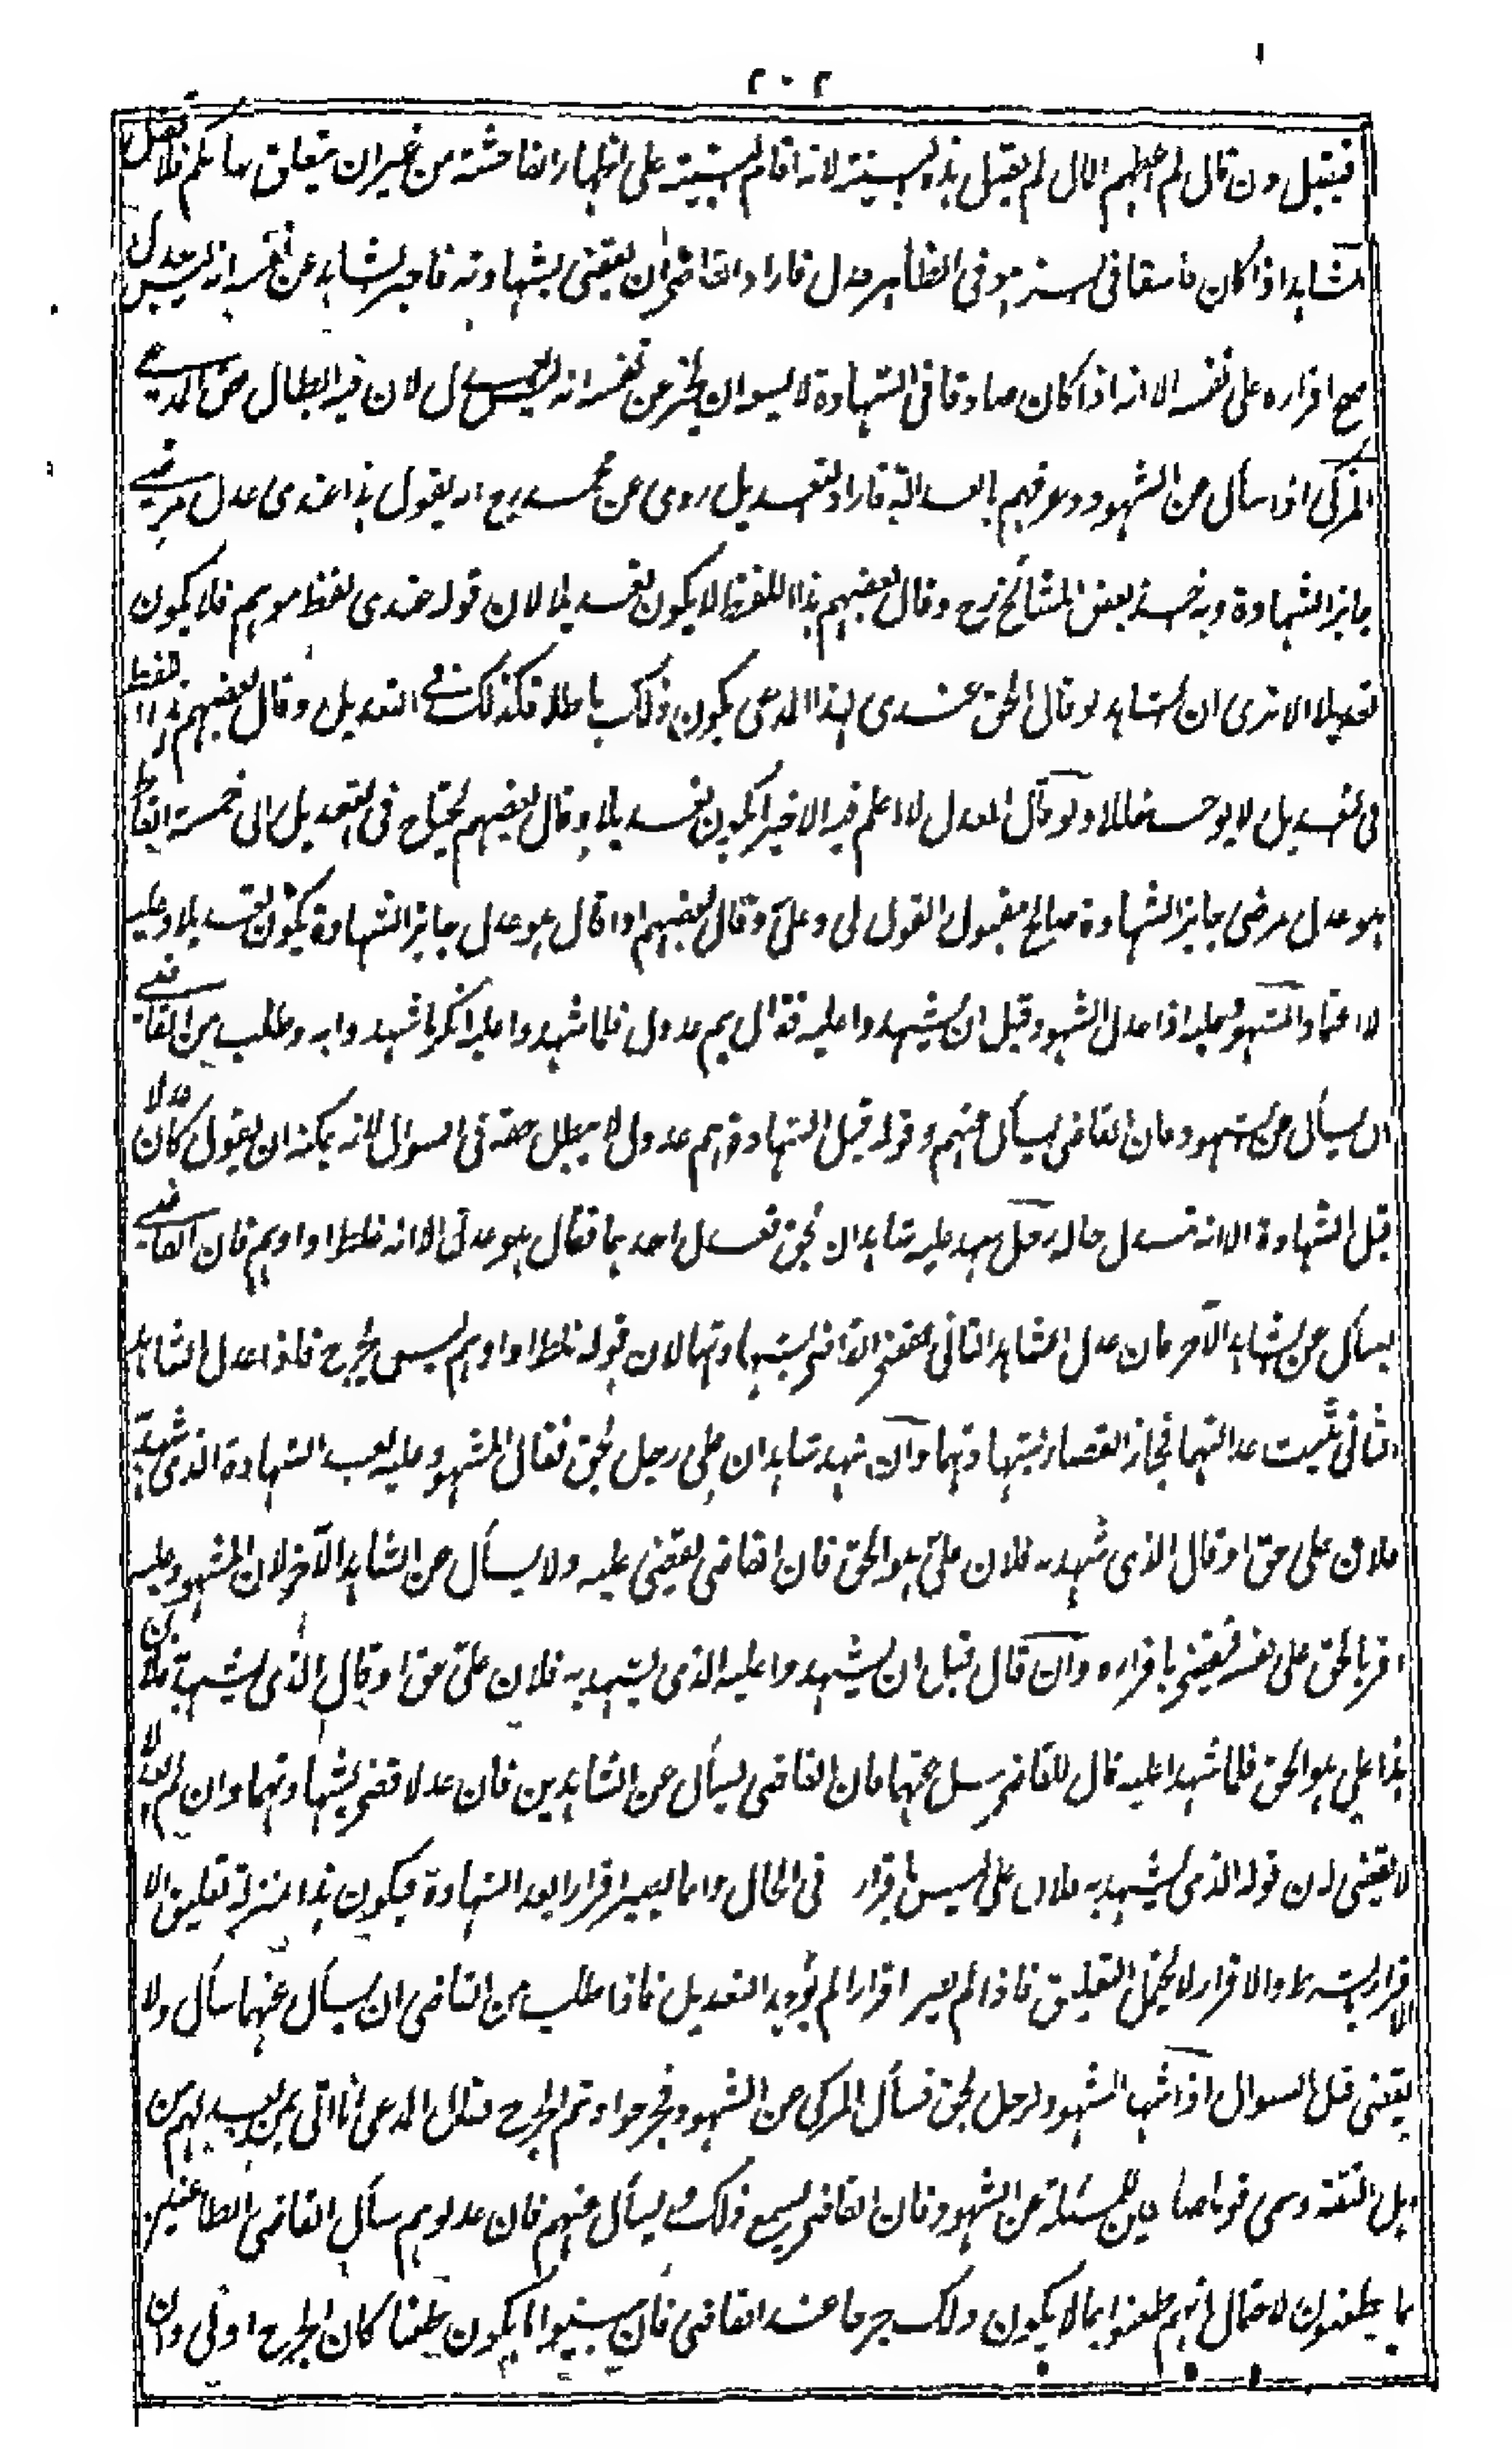 ٢٠٢
فيقبل وان قال لم اعطهم المال لم يقبل هذه البينة لانه اقام البينة على اظهار الفاحشة من غير ان يتعلق بها حكم فلا تقبل
الشاهد اذا كان فاسقا في السر هو في الظاهر عدل فاراد القاضي ان يقضي بشهادته فاخبر الشاهد عن نفسه انه ليس بعدل
صح اقراره على نفسه الا انه اذا كان صادقا في الشهادة لا يسعه ان يخبر عن نفسه انه ليس بعدل لان فيه ابطال حق المدعي
المزكي اذا سأل عن الشهود وعرفهم بالعدالة فاراد التعديل روى عن محمد رح انه يقول هذا عندي عدل مرضي
جايز الشهادة وبه اخذ بعض المشائخ رح وقال بعضهم هذا اللفظ لا يكون تعديلا لان قوله عندي لفظ موهم فلا يكون
تعديلا الا ترى ان الشاهد لو قال الحق عندي لهذا المدعي يكون ذلك باطلا فكذلك في التعديل وقال بعضهم هذا اللفظ
في التعديل لا يوجب خللا ولو قال المعدل لا اعلم فيه الا خيرا يكون تعديلا وقال بعضهم يحتاج في التعديل الى خمسة الفاظ
هو عدل مرضي جايز الشهادة صالح مقبول القول لي وعلي وقال بعضهم اذا قال هو عدل جايز الشهادة يكون تعديلا وعليه
الاعتماد المشهود عليه اذا عدل الشهود قبل ان يشهدوا عليه فقال هم عدول فلما شهدوا عليه انكر ما شهدوا به وطلب من القاضي
ان يسأل عن الشهود فان القاضي يسأل عنهم وقوله قبل الشهادة هم عدول لا يبطل حقه في السوال لانه يمكنه ان يقول كان عدلا
قبل الشهادة الا انه تبدل حاله رجل شهد عليه شاهدان بحق فعدل احدهما فقال هو عدل الا انه غلط او اوهم فان القاضي
يسأل عن الشاهد الآخر فان عدل الشاهد الثاني يقضي القاضي بشهادتهما لان قوله غلط او اوهم ليس بجرح فاذا عدل الشاهد
الثاني ثبت عدالتهما فجاز القضاء بشهادتهما وان شهد شاهدان على رجل بحق فقال المشهود عليه بعد الشهادة الذي شهد به
فلان علي حق او قال الذي شهد به فلان علي هو الحق فان القاضي يقضي عليه ولا يسأل عن الشاهد الآخر لان المشهود عليه
اقر بالحق على نفسه فيقضي باقراره وان قال قبل ان يشهدوا عليه الذي يشهد به فلان علي حق او قال الذي يشهد به فلان
هذا علي هو الحق فلما شهدا عليه قال للقاضي سل عنهما فان القاضي يسأل عن الشاهدين فان عدلا قضى بشهادتهما وان لم يعدلا
لا يقضي لان قوله الذي يشهد به فلان علي ليس باقرار في الحال وانما يصير اقرارا بعد الشهادة فيكون هذا بمنزلة تعليق الا
الاقرار بالشرط والاقرار لا يحتمل التعليق فاذا لم يصر اقرارا لم يوجد التعديل فاذا طلب من القاضي ان يسأل عنهما سأل ولا
يقضي قبل السوال اذا شهد الشهود لرجل بحق فسأل المزكي عن الشهود فجرحوا وتم الجرح فقال المدعي انا آتي بمن يعدلهم من
اهل الثقة وسمى قوما صالحين للمسئلة عن الشهود فان القاضي يسمع ذلك و يسأل عنهم فان عدلوهم سأل القاضي الطاعنين
بما يطعنون لاحتمال انهم طعنوا بما لا يكون ذلك جرحا عند القاضي فان بينوا ما يكون طعنا كان الجرح اولى وان